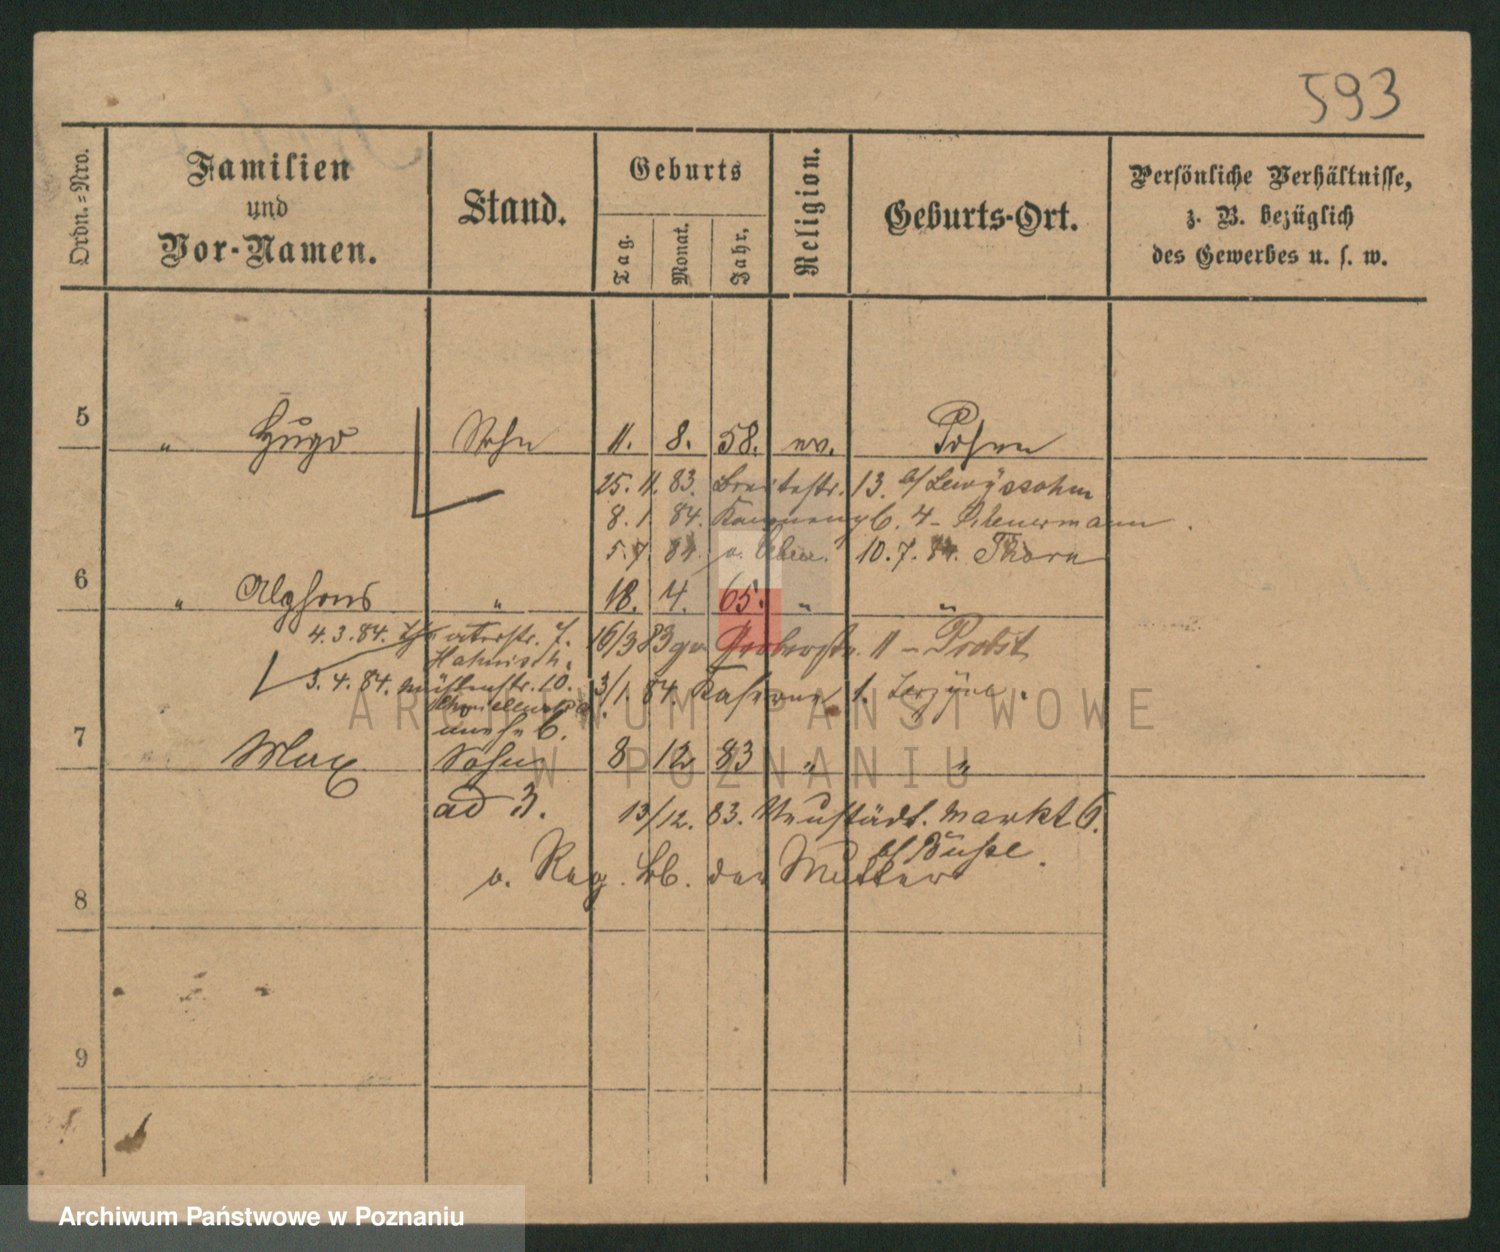 593
Ordn.-Nro.
Familien
und
Vor-Namen.
Stand.
Geburts
Tag.
Monat.
Jahr.
Religion.
Geburts-Ort.
Persönliche Verhältnisse,
z. B. bezüglich
des Gewerbes u. s. w.
5 " Hugo Sohn 11. 8. 58. ev. Posen
25. 11. 83. Breitestr. 13. b/ Lewyssohn
8. 1. 84. 4 -
5. 7. 84. 10. 7. 84. Thorn
6 " Alphons " 18. 4. 65. " "
4. 3. 84. 7. 16/3 83 11 - Probst
3. 4. 84. Mühlenstr. 10. 3/1. 84. Kaserne 1.
7 Max Sohn 8 12 83 " "
ad 3. 13/12. 83. Neustädt. Markt 6.
v. Reg. bb. der Mutter
8
9
ARCHIWUM PAŃSTWOWE
W POZNANIU
Archiwum Państwowe w Poznaniu